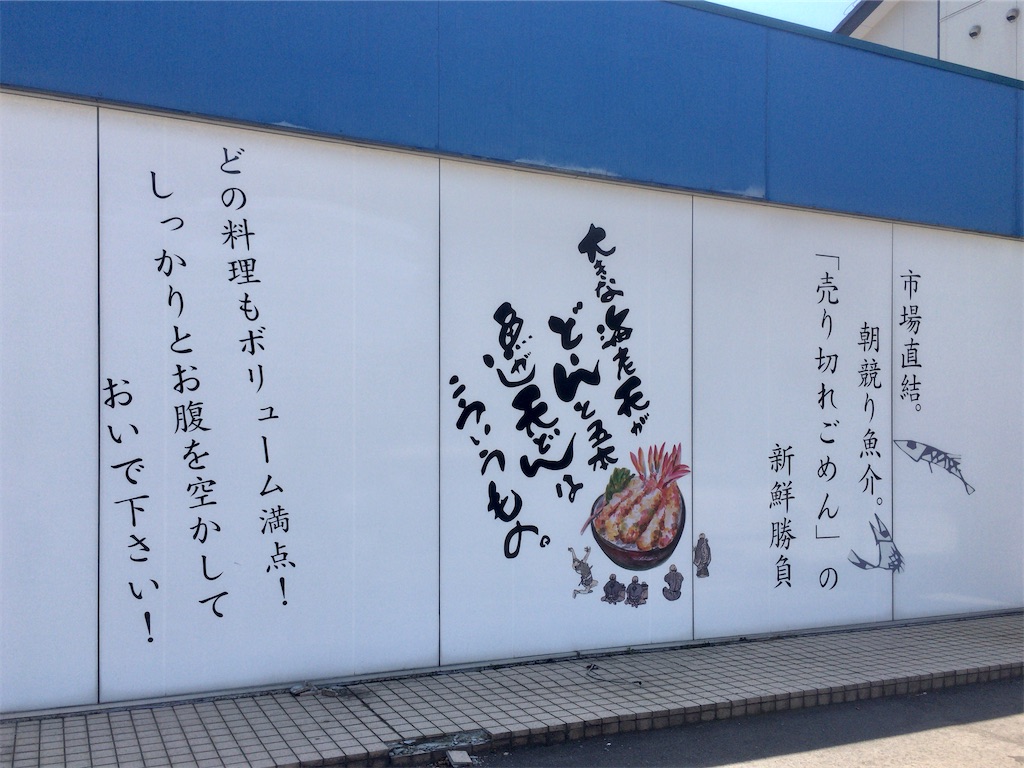 市場直結。
朝競り魚介。
「売り切れごめん」の
新鮮勝負
大きな海老天が
どーんと五本
魚がし天どんは
こういうもの。
どの料理もボリューム満点！
しっかりとお腹を空かして
おいで下さい！